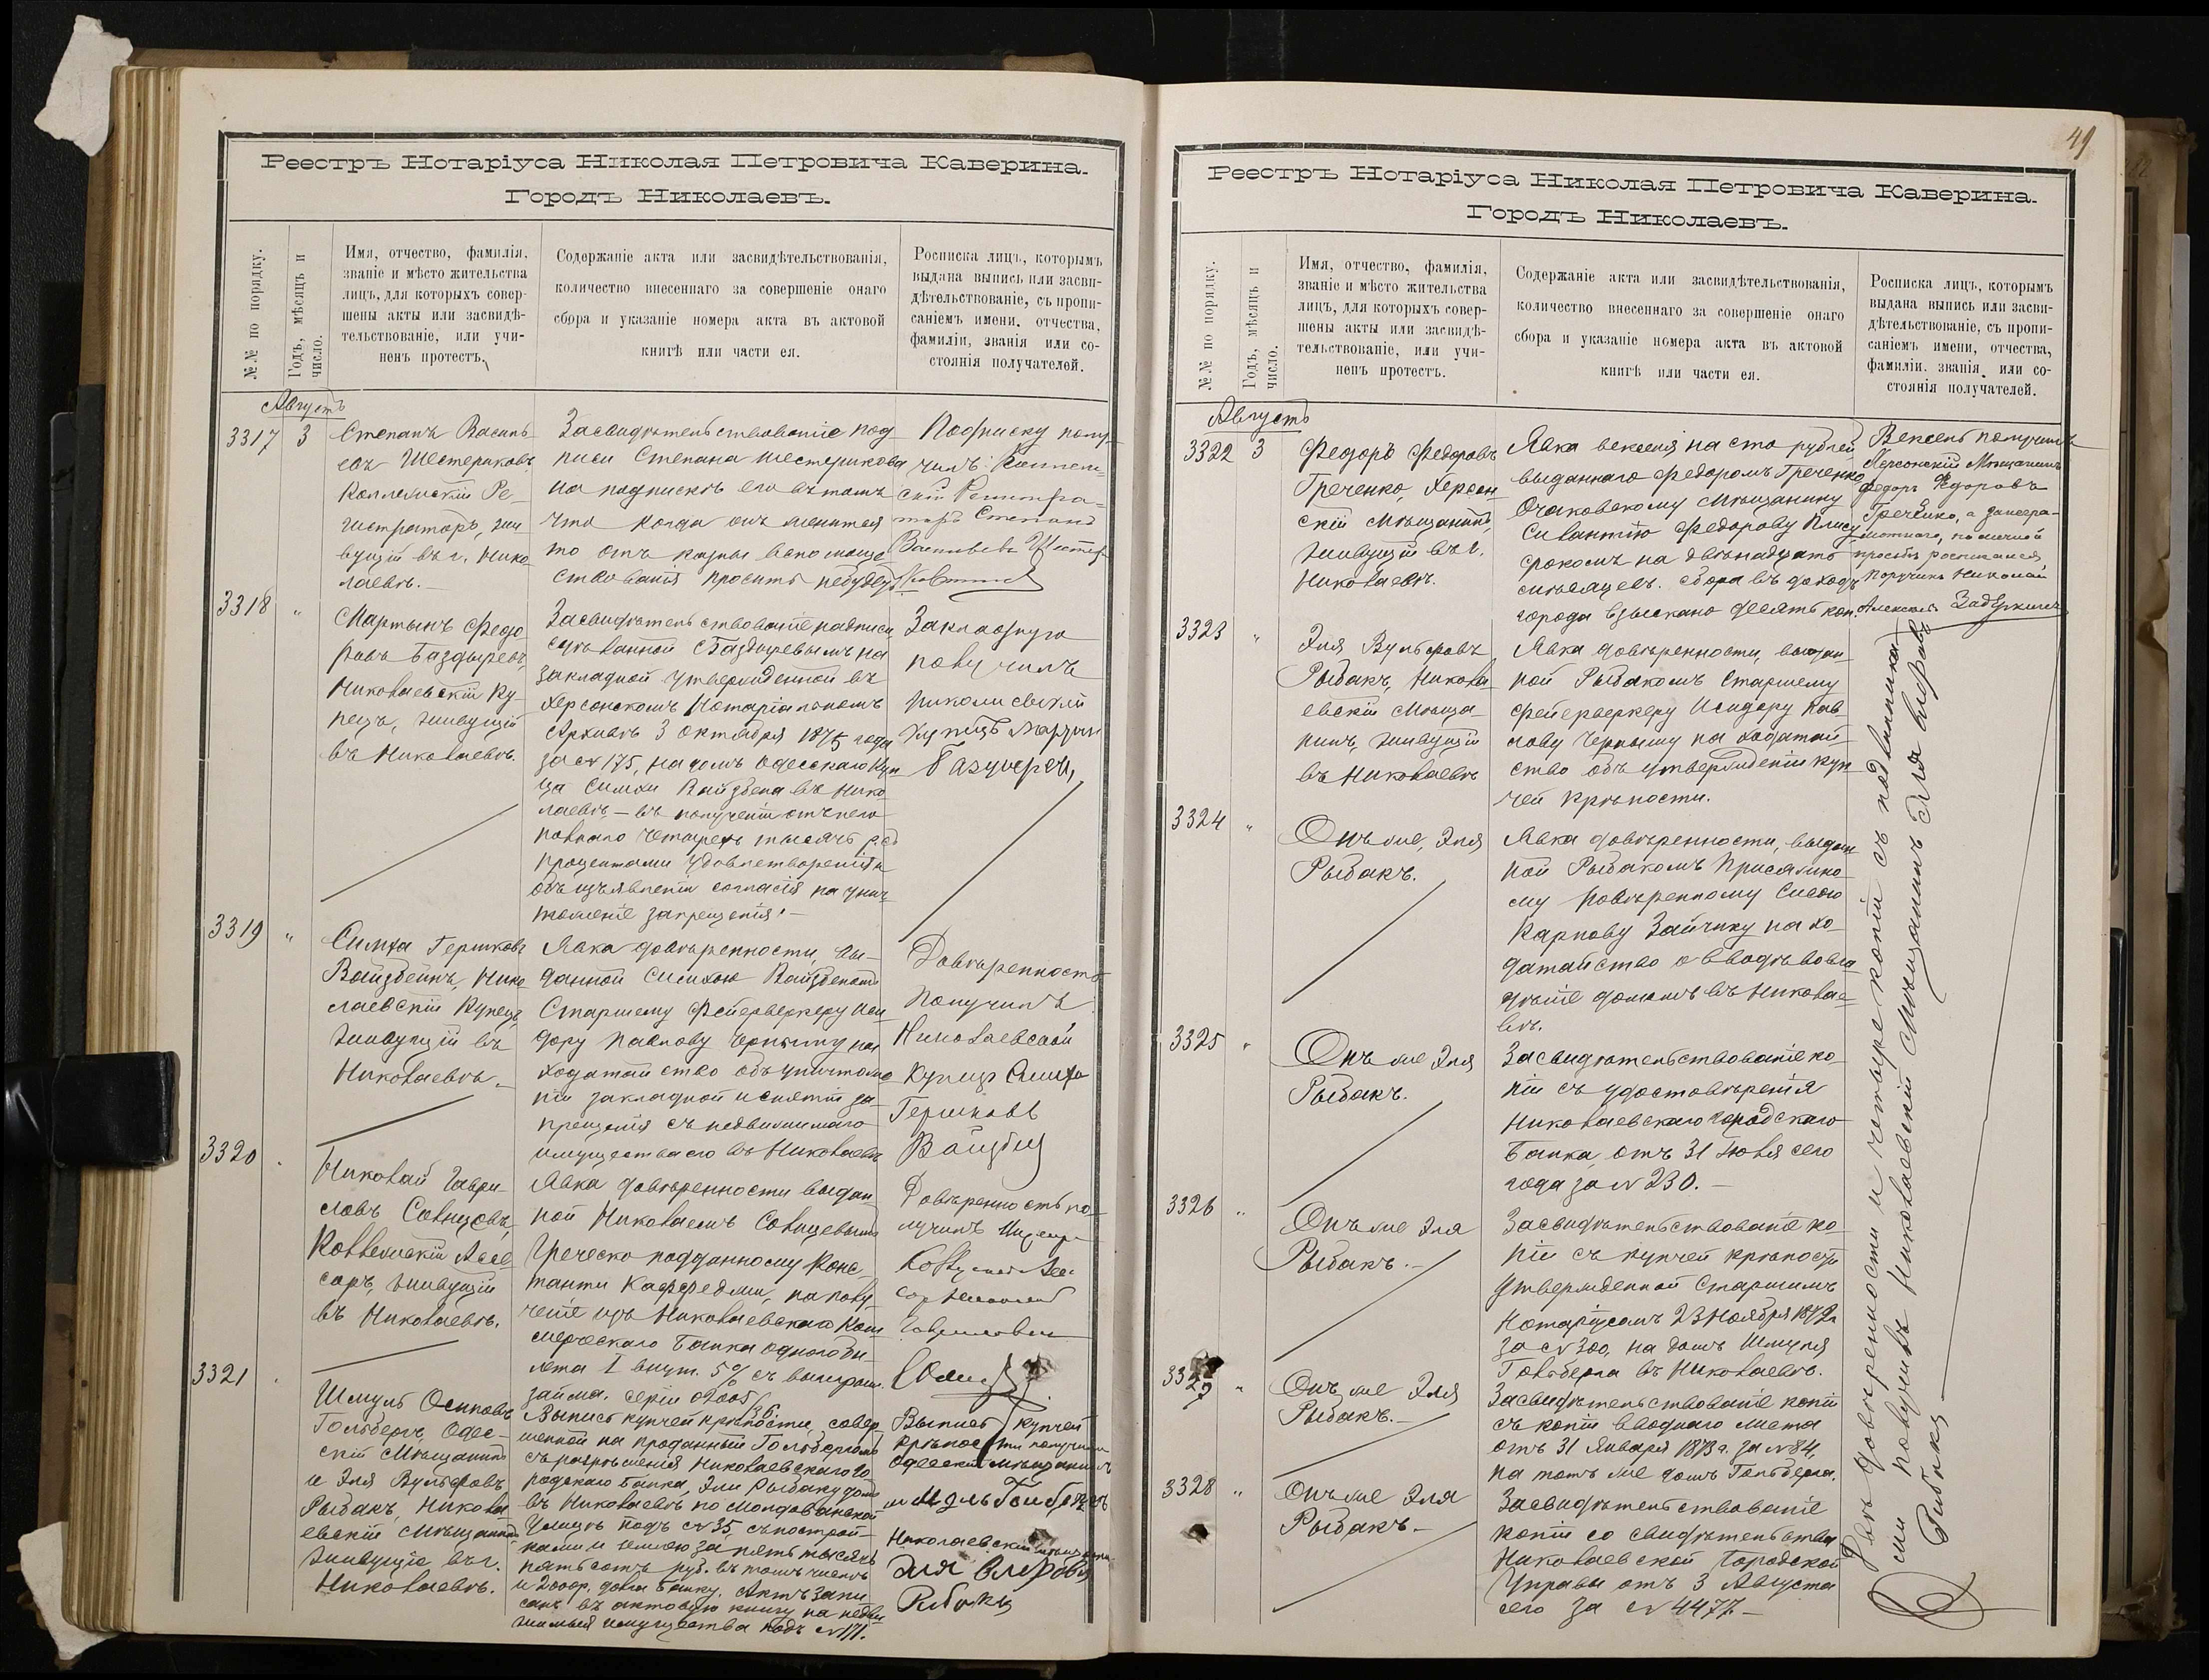 Реестръ Нотаріуса Николая Петровича Каверина.
Городъ Николаевъ.
№№ по порядку.
Годъ, мѣсяцъ и
число.
Имя, отчество, фамилія,
званіе и мѣсто жительства
лицъ, для которыхъ совер-
шены акты или засвидѣ-
тельствованіе, или учи-
ненъ протестъ.
Содержаніе акта или засвидѣтельствованія,
количество внесеннаго за совершеніе онаго
сбора и указаніе номера акта въ актовой
книгѣ или части ея.
Росписка лицъ, которымъ
выдана выпись или засви-
дѣтельствованіе, съ пропи-
саніемъ имени, отчества,
фамиліи, званія или со-
стоянія получателей.
Августъ
3317
3
Степанъ Василь-
евъ Шестериковъ
Коллежскій Ре-
гистраторъ, жи
вущій въ г. Нико
лаевѣ.
Засвидѣтельствованіе под
писи Степана Шестерикова
на подпискѣ его въ томъ
что когда онъ женится
то отъ казны вспомоще
ствованія просить небудетъ
Подписку полу-
чилъ Коллеж-
скій Регистра-
торъ Степанъ
Васильевъ Шестер
3318
"
Мартынъ Федо
ровъ Баздыревъ,
Николаевскій Ку-
пецъ, живущій
въ Николаевѣ.
Засвидѣтельствованіе надписи
сдѣланной Баздыревымъ на
закладной утвержденной въ
Херсонскомъ Нотаріальномъ
Архивѣ 3 Октября 1875 года
за № 175, на домъ Одесскаго Куп
ца Симхи Вайзбена въ Нико
лаевѣ – въ полученіи отъ него
полнаго четырехъ тысячъ р. съ
процентами удовлетворенія и
объ изъявленіи согласія на унич
тоженіе запрещенія. –
Закладную
получилъ
3319
"
Симха Гершковъ
Вайзбейнъ, Нико
лаевскій Купецъ,
живущій въ
Николаевѣ.
Явка довѣренности, вы-
данной Симхою Вайзбеномъ
Старшему Фейерверкеру Иси
дору Павлову Черныму на
ходатайство объ уничтоже
ніи закладной и снятіи за-
прещенія съ недвижимаго
имущества его въ Николаевѣ
Довѣренность
Получилъ
Николаевской
Купецъ Симха
Гершковъ
3320
Николай Гаври-
ловъ Совицовъ,
Коллежскій Ассе
соръ, живущій
въ Николаевѣ.
Явка довѣренности выдан-
ной Николаемъ Совицевымъ
Греческо подданному Конс-
танти Каффеджи, на полу-
ченіе изъ Николаевскаго Ком
мерческаго Банка одного би-
лета I внут. 5% съ выигрыш.
займа. серіи 02005/36
Довѣренность по-
лучилъ
3321
Шмуль Осиповъ
Гольбергъ, Одес-
скій Мѣщанинъ
и Эля Вульфовъ
Рыбакъ, Никола
евскій Мѣщанинъ
живущіе въ г.
Николаевѣ.
Выпись купчей крѣпости, совер
шенной на проданный Гольбергомъ
съ разрѣшенія Николаевскаго Го-
родскаго Банка, Эли Рыбаку домъ
въ Николаевѣ по Молдованской
Улицѣ подъ № 35, съ построй-
ками и землею за пять тысячъ
пятьсотъ руб. въ томъ числѣ
и 2000 р. долга Банку. Актъ запи
санъ въ актовую книгу на недви
жимыя имущества подъ № 171.
Выпись купчей
крѣпости получили
Одесскій мѣщанинъ
Николаевскій мѣщанин
Эля
Рибакъ
49
Реестръ Нотаріуса Николая Петровича Каверина.
Городъ Николаевъ.
№№ по порядку.
Годъ, мѣсяцъ и
число.
Имя, отчество, фамилія,
званіе и мѣсто жительства
лицъ, для которыхъ совер-
шены акты или засвидѣ-
тельствованіе, или учи-
ненъ протестъ.
Содержаніе акта или засвидѣтельствованія,
количество внесеннаго за совершеніе онаго
сбора и указаніе номера акта въ актовой
книгѣ или части ея.
Росписка лицъ, которымъ
выдана выпись или засви-
дѣтельствованіе, съ пропи-
саніемъ имени, отчества,
фамиліи, званія или со-
стоянія получателей.
Августъ
3322
3
Федоръ Федоровъ
Греченко, Херсон
скій Мѣщанинъ,
живущій въ г.
Николаевѣ.
Явка векселя на сто рублей
выданнаго Федоромъ Греченко
Очаковскому Мѣщанину
Силантію Федорову Плису
срокомъ на двѣнадцать
мѣсяцевъ. сбора въ доходъ
города взыскано десять коп.
Вексель получилъ
Херсонскій Мѣщанинъ
Федоръ Федоровъ
Греченко, а за негра-
мотнаго, по личной
просьбѣ росписался
Поручикъ Николай
3323
"
Эля Вульфовъ
Рыбакъ, Никола
евскій Мѣща-
нинъ, живущій
въ Николаевѣ
Явка довѣренности, выдан-
ной Рыбакомъ Старшему
Фейерверкеру Исидору Пав-
лову Черныму на ходатай-
ство объ утвержденіи куп-
чей крѣпости.
3324
"
Онъ же, Эля
Рыбакъ.
Явка довѣренности, выдан
ной Рыбакомъ Присяжно-
му Повѣренному
Карпову Зайчику на хо-
датайство о вводѣ вовла-
дѣніе домомъ въ Николае-
вѣ.
3325
"
Онъ же Эля
Рыбакъ.
Засвидѣтельствованіе ко-
піи съ удостовѣренія
Николаевскаго Городскаго
Банка, отъ 31 Іюля сего
года за № 230. –
3326
"
Онъ же Эля
Рыбакъ. –
Засвидѣтельствованіе ко-
піи съ купчей крѣпости
утвержденной Старшимъ
Нотаріусомъ 23 Ноября 1872 г.
за № 300, на домъ Шмуля
Гольберга въ Николаевѣ.
3327
"
Онъ же Эля
Рыбакъ. –
Засвидѣтельствованіе копіи
съ копіи вводнаго листа
отъ 31 Января 1873 г. за № 84,
на тотъ же домъ Гольберга.
3328
"
Онъ же Эля
Рыбакъ –
Засвидѣтельствованіе
копіи со свидѣтельства
Николаевской Городской
Управы отъ 3 Августа
сего за № 4477. –
Двѣ довѣренности и четыре копіи съ подлинника
ми получилъ Николаевскій Мѣщанинъ Эля
Рибакъ